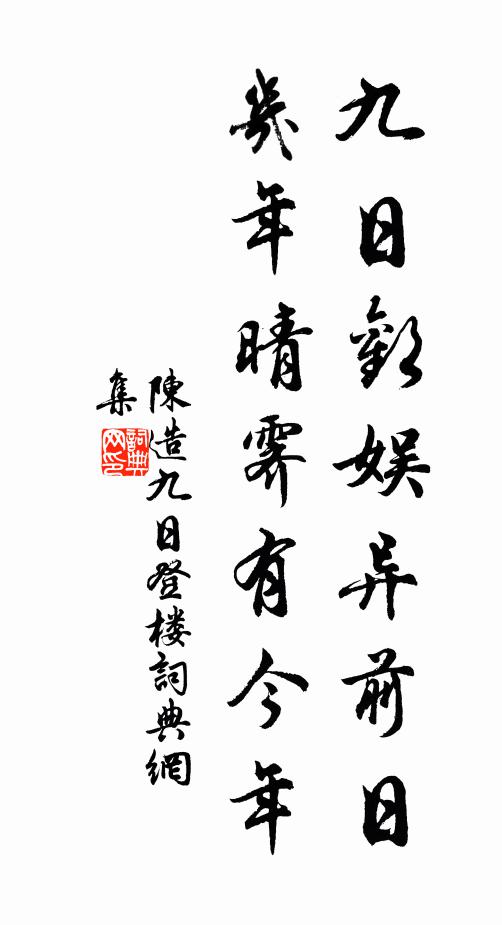 九日歡娱异前日
幾年晴霽有今年
陳造九日登楼詞典網
集
詞典
网印